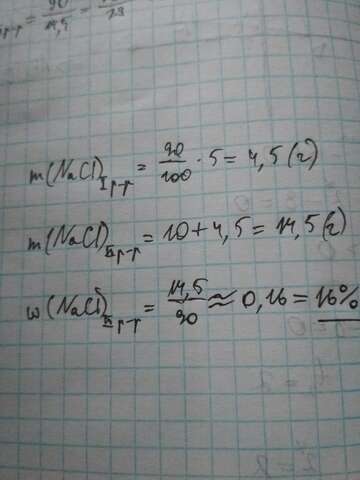 90/14,5 =
m(NaCl)I р-р = 90/100 · 5 = 4,5 (г)
m(NaCl)II р-р = 10 + 4,5 = 14,5 (г)
w(NaCl)II р-р = 14,5/90 ≈ 0,16 = 16%